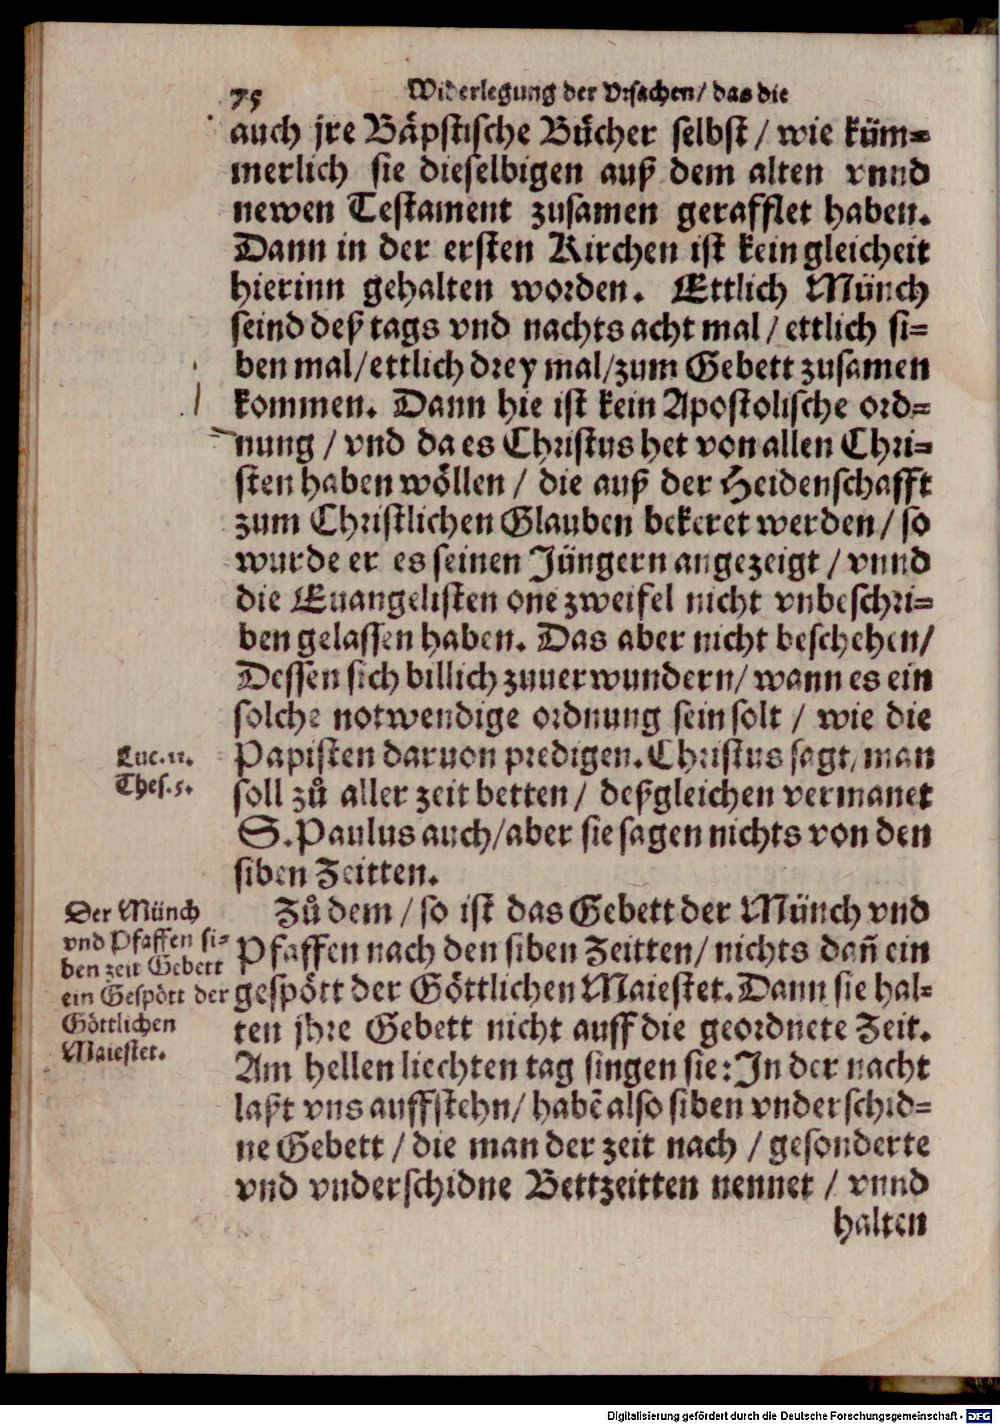 75 Widerlegung der Vrsachen/ das die
auch jre Båpstische Bůcher selbst / wie küm⸗
merlich sie dieselbigen auß dem alten vnnd
newen Testament zusamen gerafflet haben.
Dann in der ersten Kirchen ist kein gleicheit
hierinn gehalten worden. Ettlich Münch
seind deß tags vnd nachts acht mal / ettlich si⸗
ben mal/ettlich drey mal/zum Gebett zusamen
kommen. Dann hie ist kein Apostolische ord⸗
nung / vnd da es Christus het von allen Chri⸗
sten haben wöllen / die auß der Heidenschafft
zum Christlichen Glauben bekeret werden / so
wurde er es seinen Jüngern angezeigt / vnnd
die Euangelisten one zweifel nicht vnbeschri⸗
ben gelassen haben. Das aber nicht beschehen/
Dessen sich billich zuuerwundern/ wann es ein
solche notwendige ordnung sein solt / wie die
Luc.11.
Papisten daruon predigen. Christus sagt/ man
Thes.5.
soll zů aller zeit betten / deßgleichen vermanet
S. Paulus auch/aber sie sagen nichts von den
siben Zeitten.
Der Münch
vnd Pfaffen si⸗
ben zeit Gebett
ein Gespött der
Göttlichen
Maiestet.
Zů dem / so ist das Gebett der Münch vnd
Pfaffen nach den siben Zeitten/ nichts dañ ein
gespött der Göttlichen Maiestet. Dann sie hal⸗
ten jhre Gebett nicht auff die geordnete Zeit.
Am hellen liechten tag singen sie: In der nacht
laßt vns auffstehn/ habẽ also siben vnderschid⸗
ne Gebett / die man der zeit nach / gesonderte
vnd vnderschidne Bettzeitten nennet / vnnd
halten
Digitalisierung gefördert durch die Deutsche Forschungsgemeinschaft - DFG